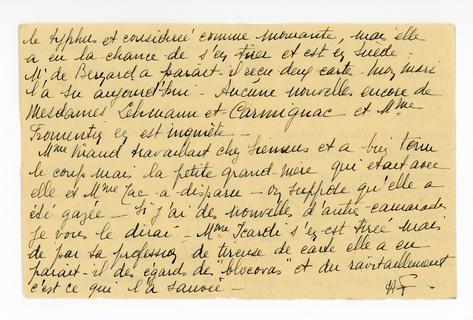 le typhus et considérée comme mourante, mais elle
a eu la chance de s'en tirer et est en Suède -
Mr de Bezard a parait-il reçu deux carte - mon mari
l'a su aujourd'hui - Aucune nouvelles encore de
Mesdames Lehmann et Carmignac et Mme
Fromentin en est inquiète -
Mme Viraud travaillant chez Siemens et a bien tenu
le coup mais la petite grand-mère qui était avec
elle et Mme Zac - a disparu - on suppose qu'elle a
été gazée - Si j'ai des nouvelles d'autre camarades
je vous le dirai - Mme Icarde s'en est tirée mais
de par sa profession de tireuse de carte elle a eu
parait-il des égards des "blocovas" et du ravitaillement
c'est ce qui l'a sauvée -